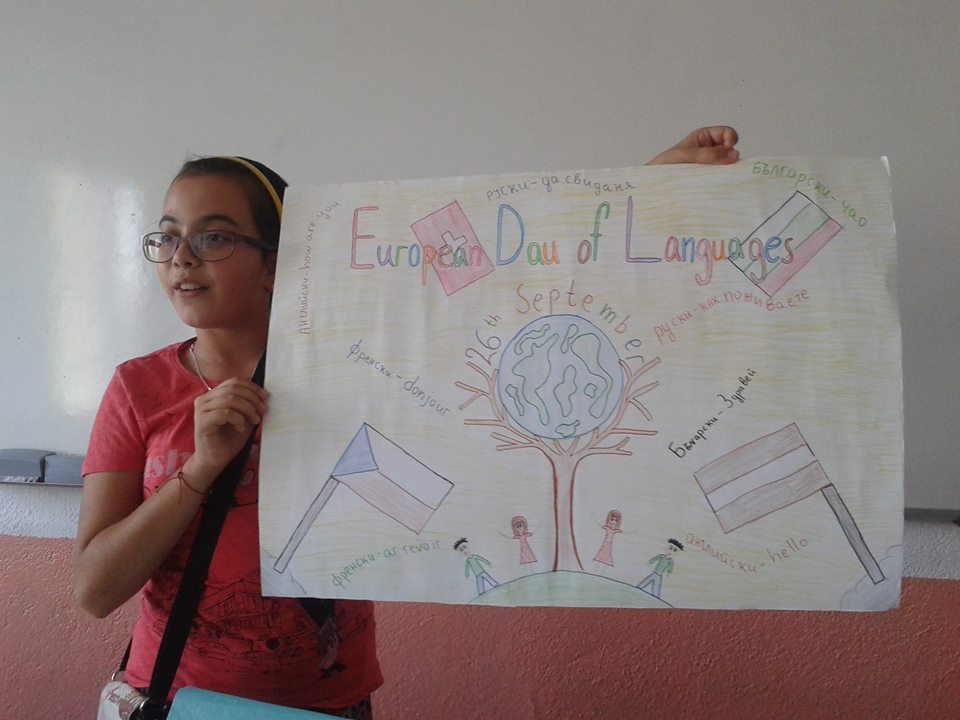 руски-да свиданя
български-чао
английски-how are you
European Day of Languages
26th September
руски-как поживаете
френски-donjour
Български-Здравей
френски-ar revoir
английски-hello